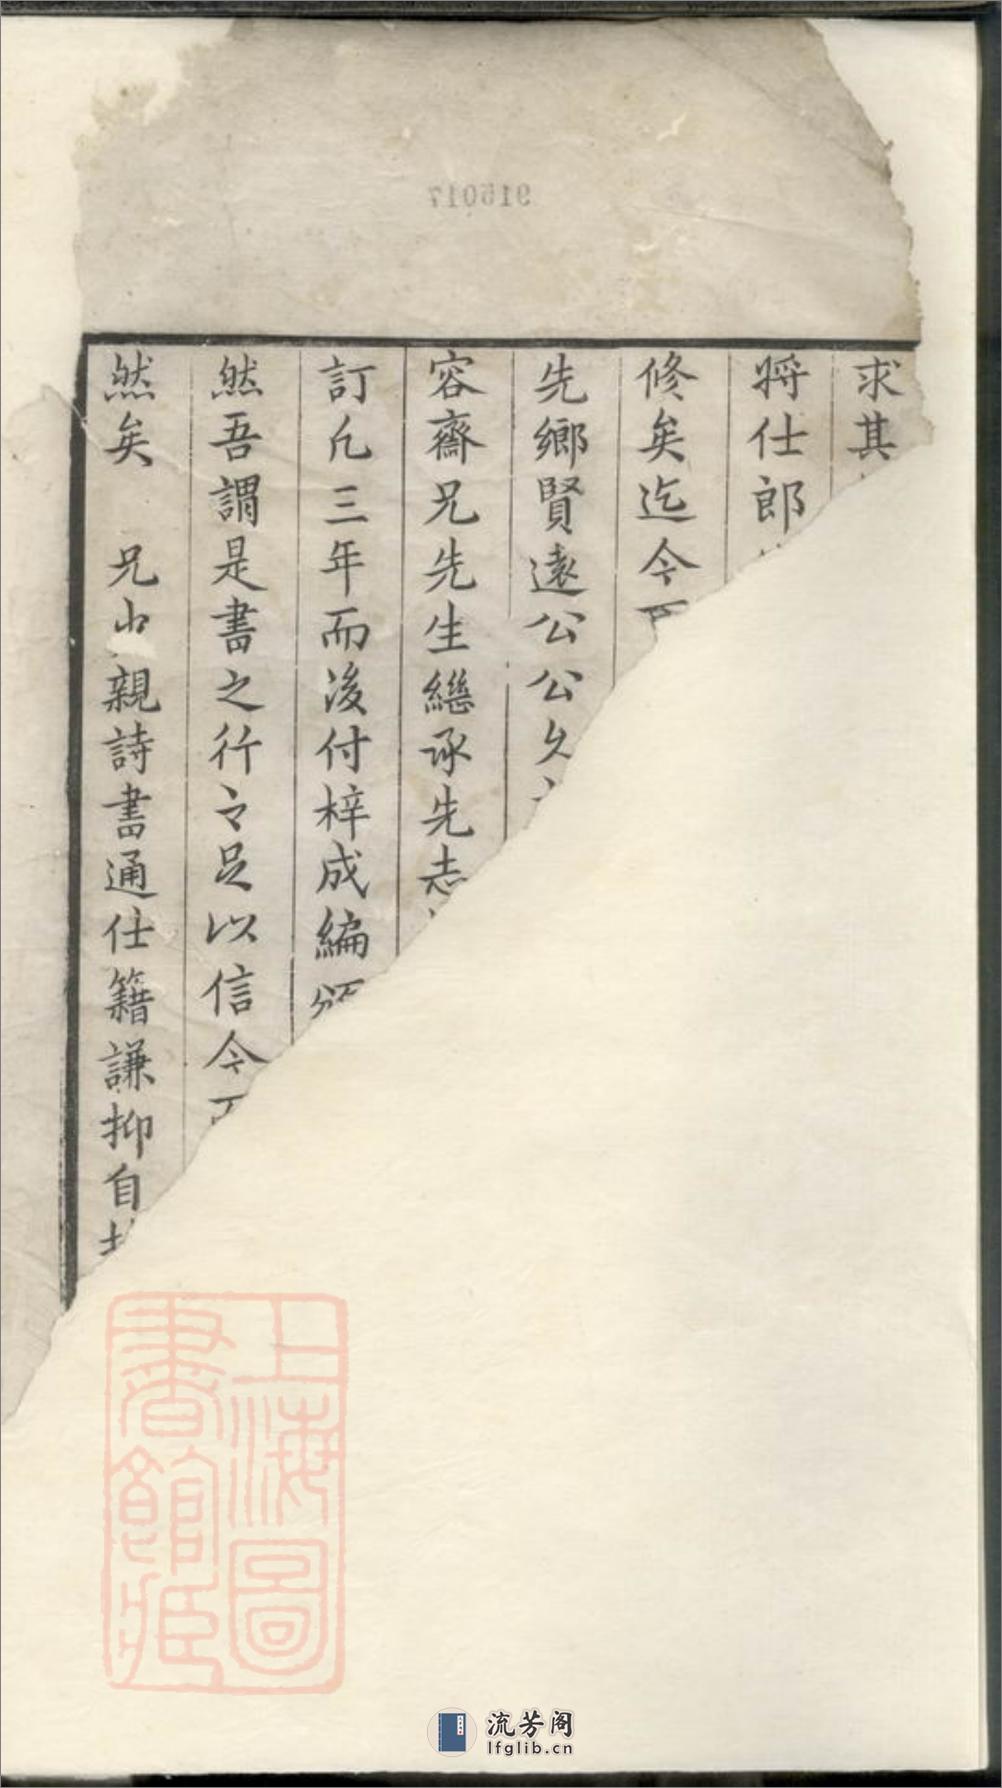 915017
求其
将仕郎
修矣迄今
先鄉賢遠公公久
容齋兄先生繼承先志
訂凡三年而後付梓成編頒
然吾謂是書之行々足以信今
然矣 兄 親詩書通仕籍謙抑自
上海圖
書館藏
流芳阁
lfglib.cn